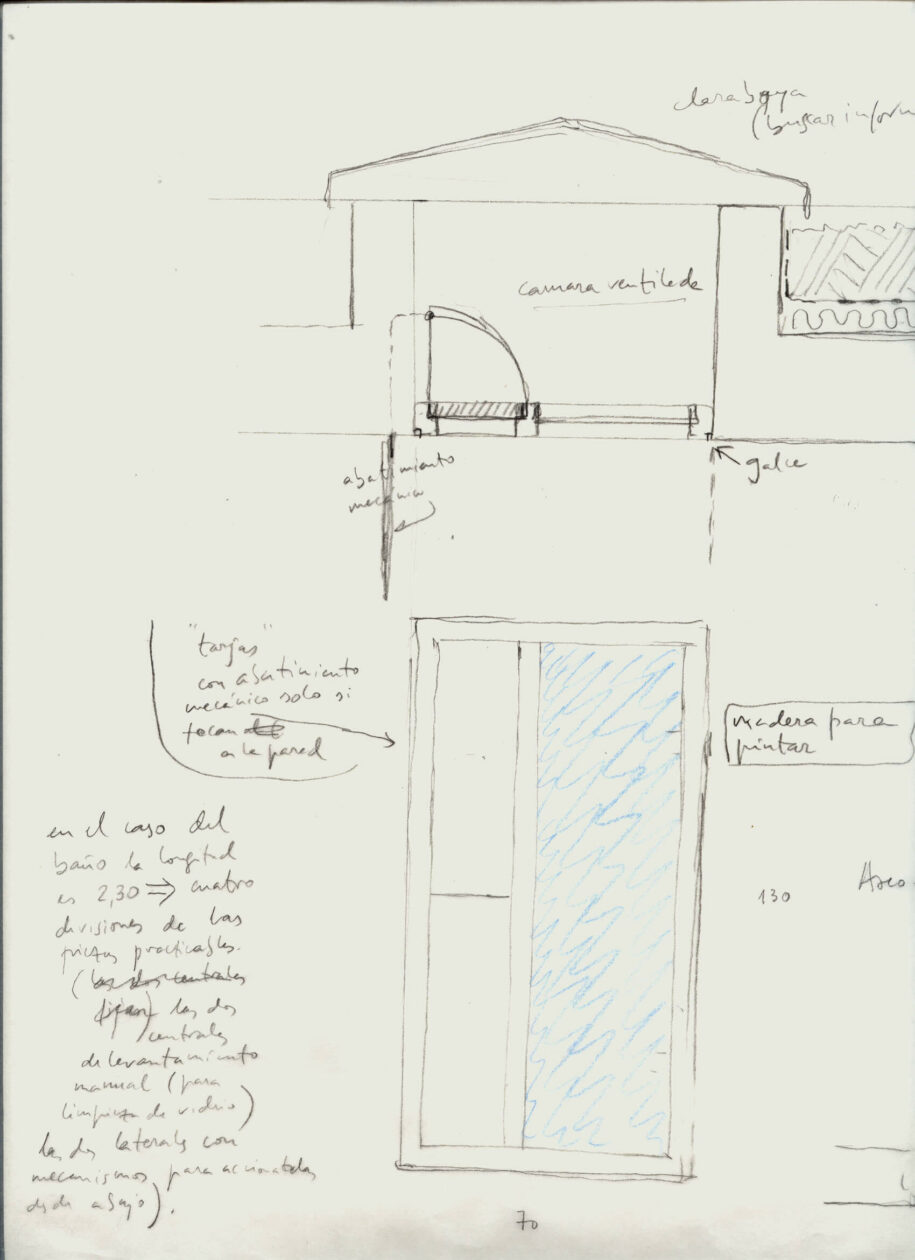 claraboya
(buscar inform
camara ventilada
galce
abatimiento
mecánico
"tarjas"
con abatimiento
mecánico solo si
tocan
a la pared
madera para
pintar
en el caso del
baño la longitud
es 2,30 ⇒ cuatro
divisiones de las
piezas practicables.
(las dos centrales
fijan) las dos
centrales
de levantamiento
manual (para
limpieza de vidrio)
las dos laterales con
mecanismos para accionarlas
desde abajo).
130
Aseo
70